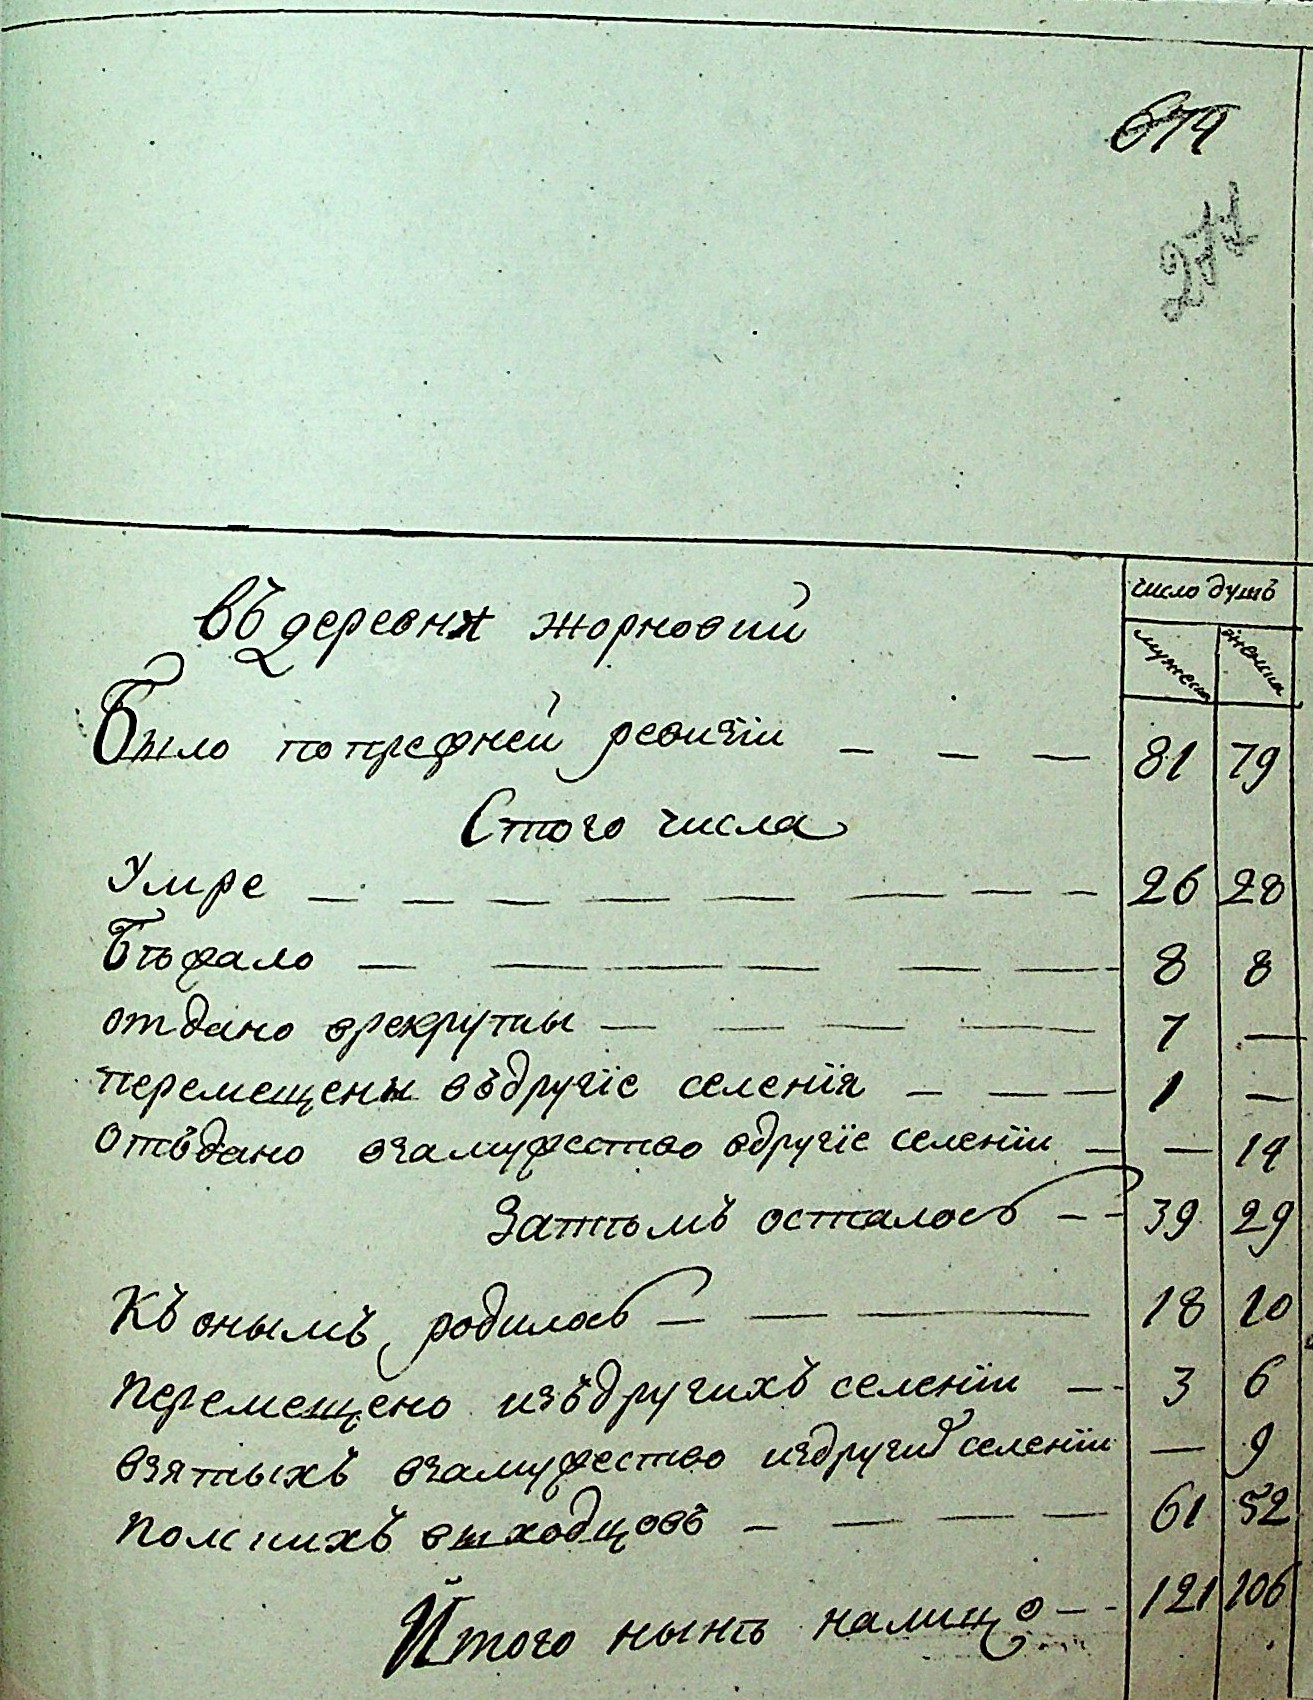 674
277
въ деревнѣ жорновки
число душъ
мужеска
женска
Было попредней ревизіи — — — 81 79
Стого числа
Умре — — — — — — — — 26 28
Бѣжало — — — — — 8 8
отдано врекруты — — — — 7 —
перемещены въдругіе селенія — — — 1 —
Отъдано взамужество вдругіе селеніи — — 14
Затѣмъ осталось — — 39 29
Къ онымъ родилось — — — 18 10
перемещено изъдругихъ селеніи — - 3 6
взятыхъ взамужество издругихъ селеніи — 9
полскихъ выходцовъ — — — — 61 52
Итого нынѣ налицо — - 121 106